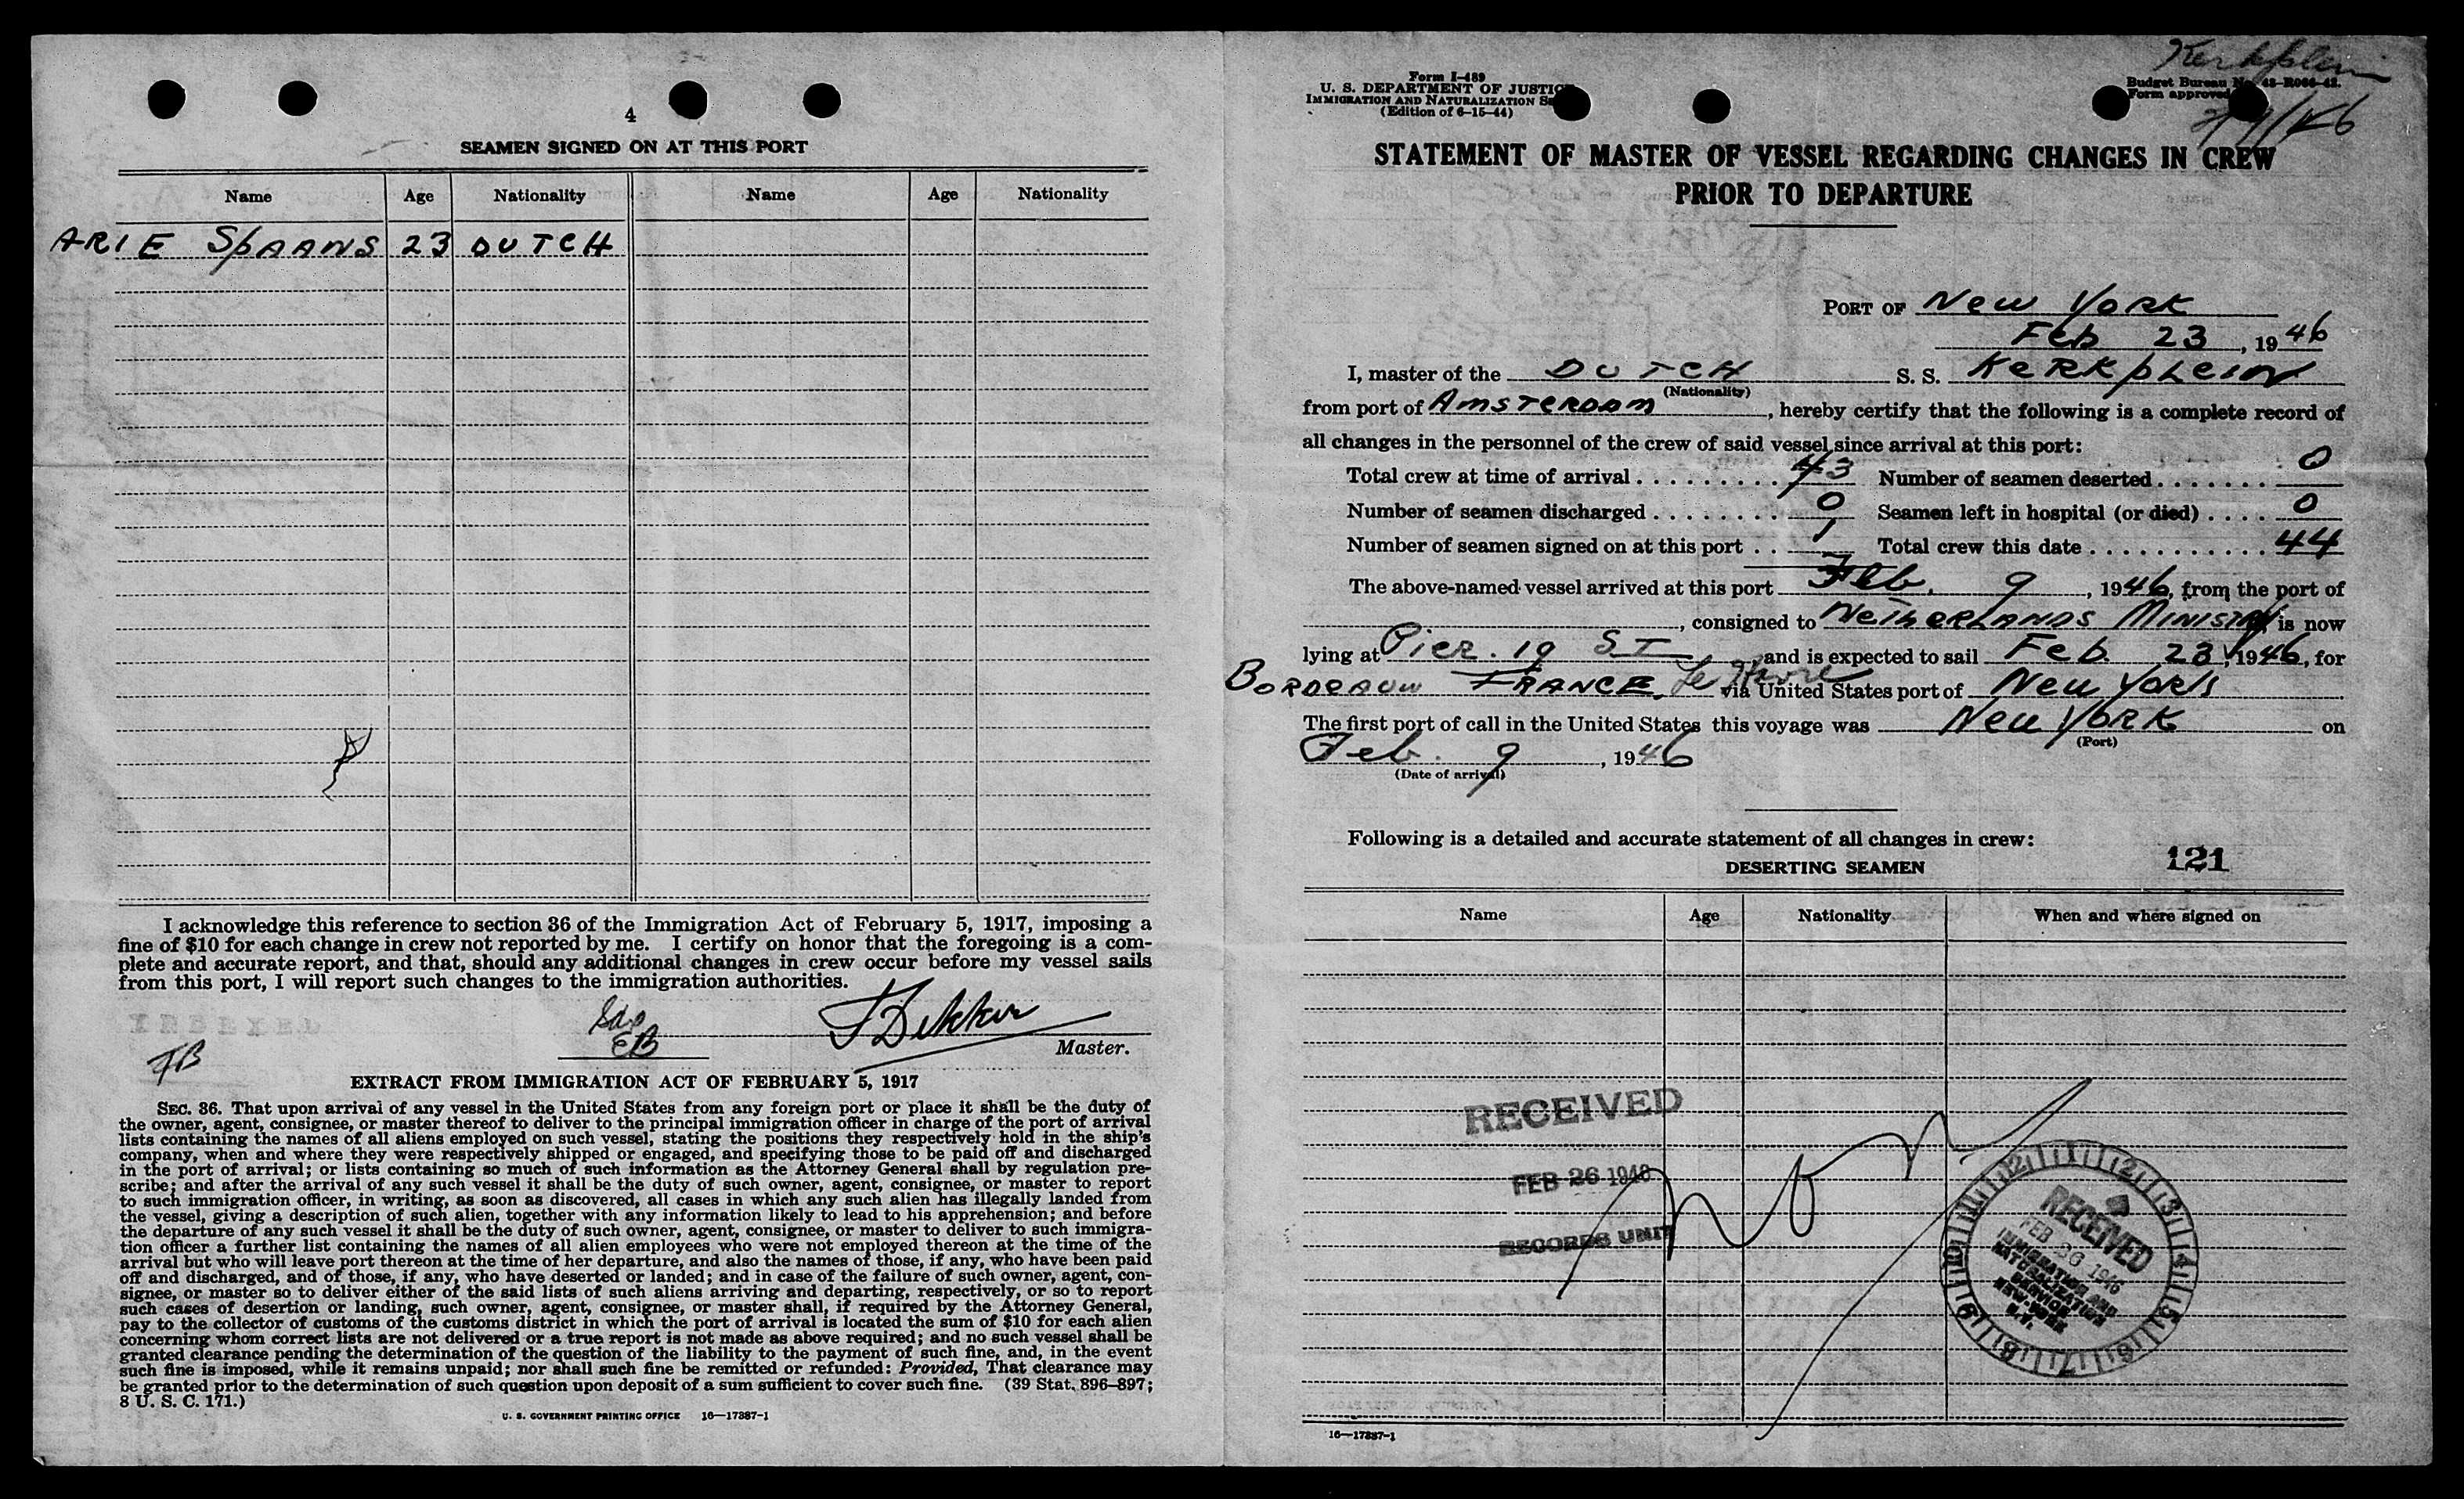 4
SEAMEN SIGNED ON AT THIS PORT
Name Age Nationality Name Age Nationality
ARIE SpAANS 23 DUTCH
I acknowledge this reference to section 36 of the Immigration Act of February 5, 1917, imposing a
fine of $10 for each change in crew not reported by me. I certify on honor that the foregoing is a com-
plete and accurate report, and that, should any additional changes in crew occur before my vessel sails
from this port, I will report such changes to the immigration authorities.
EB
JDekker
Master.
EXTRACT FROM IMMIGRATION ACT OF FEBRUARY 5, 1917
SEC. 36. That upon arrival of any vessel in the United States from any foreign port or place it shall be the duty of
the owner, agent, consignee, or master thereof to deliver to the principal immigration officer in charge of the port of arrival
lists containing the names of all aliens employed on such vessel, stating the positions they respectively hold in the ship's
company, when and where they were respectively shipped or engaged, and specifying those to be paid off and discharged
in the port of arrival; or lists containing so much of such information as the Attorney General shall by regulation pre-
scribe; and after the arrival of any such vessel it shall be the duty of such owner, agent, consignee, or master to report
to such immigration officer, in writing, as soon as discovered, all cases in which any such alien has illegally landed from
the vessel, giving a description of such alien, together with any information likely to lead to his apprehension; and before
the departure of any such vessel it shall be the duty of such owner, agent, consignee, or master to deliver to such immigra-
tion officer a further list containing the names of all alien employees who were not employed thereon at the time of the
arrival but who will leave port thereon at the time of her departure, and also the names of those, if any, who have been paid
off and discharged, and of those, if any, who have deserted or landed; and in case of the failure of such owner, agent, con-
signee, or master so to deliver either of the said lists of such aliens arriving and departing, respectively, or so to report
such cases of desertion or landing, such owner, agent, consignee, or master shall, if required by the Attorney General,
pay to the collector of customs of the customs district in which the port of arrival is located the sum of $10 for each alien
concerning whom correct lists are not delivered or a true report is not made as above required; and no such vessel shall be
granted clearance pending the determination of the question of the liability to the payment of such fine, and, in the event
such fine is imposed, while it remains unpaid; nor shall such fine be remitted or refunded: Provided, That clearance may
be granted prior to the determination of such question upon deposit of a sum sufficient to cover such fine. (39 Stat. 896-897;
8 U. S. C. 171.)
U. S. GOVERNMENT PRINTING OFFICE 16—17387-1
Kerkplein
Form I-489
U. S. DEPARTMENT OF JUSTICE
IMMIGRATION AND NATURALIZATION
(Edition of 6-15-44)
Budget Bureau No. 43-R066-42.
Form approved
STATEMENT OF MASTER OF VESSEL REGARDING CHANGES IN CREW
PRIOR TO DEPARTURE
PORT OF New York
Feb 23, 1946
I, master of the DUTCH S. S. KeRKpLein
(Nationality)
from port of AmsTeRDAm, hereby certify that the following is a complete record of
all changes in the personnel of the crew of said vessel since arrival at this port:
Total crew at time of arrival . . . . . . . . . 43 Number of seamen deserted . . . . . . . 0
Number of seamen discharged . . . . . . . 0 Seamen left in hospital (or died) . . . . 0
Number of seamen signed on at this port . . 1 Total crew this date . . . . . . . . . . . 44
The above-named vessel arrived at this port Feb. 9, 1946, from the port of
, consigned to NetheRLANDS MINISTRY, is now
lying at Pier. 19 ST and is expected to sail Feb. 23, 1946, for
BORDEAUX FRANCE Le Havre via United States port of New York
The first port of call in the United States this voyage was New YORK on
(Port)
Feb. 9, 1946
(Date of arrival)
Following is a detailed and accurate statement of all changes in crew:
DESERTING SEAMEN 121
Name Age Nationality When and where signed on
RECEIVED
FEB 26 1946
RECORDS UNIT
RECEIVED
FEB 26 1946
IMMIGRATION AND
NATURALIZATION
SERVICE
NEW-YORK
N.Y.
16—17387-1